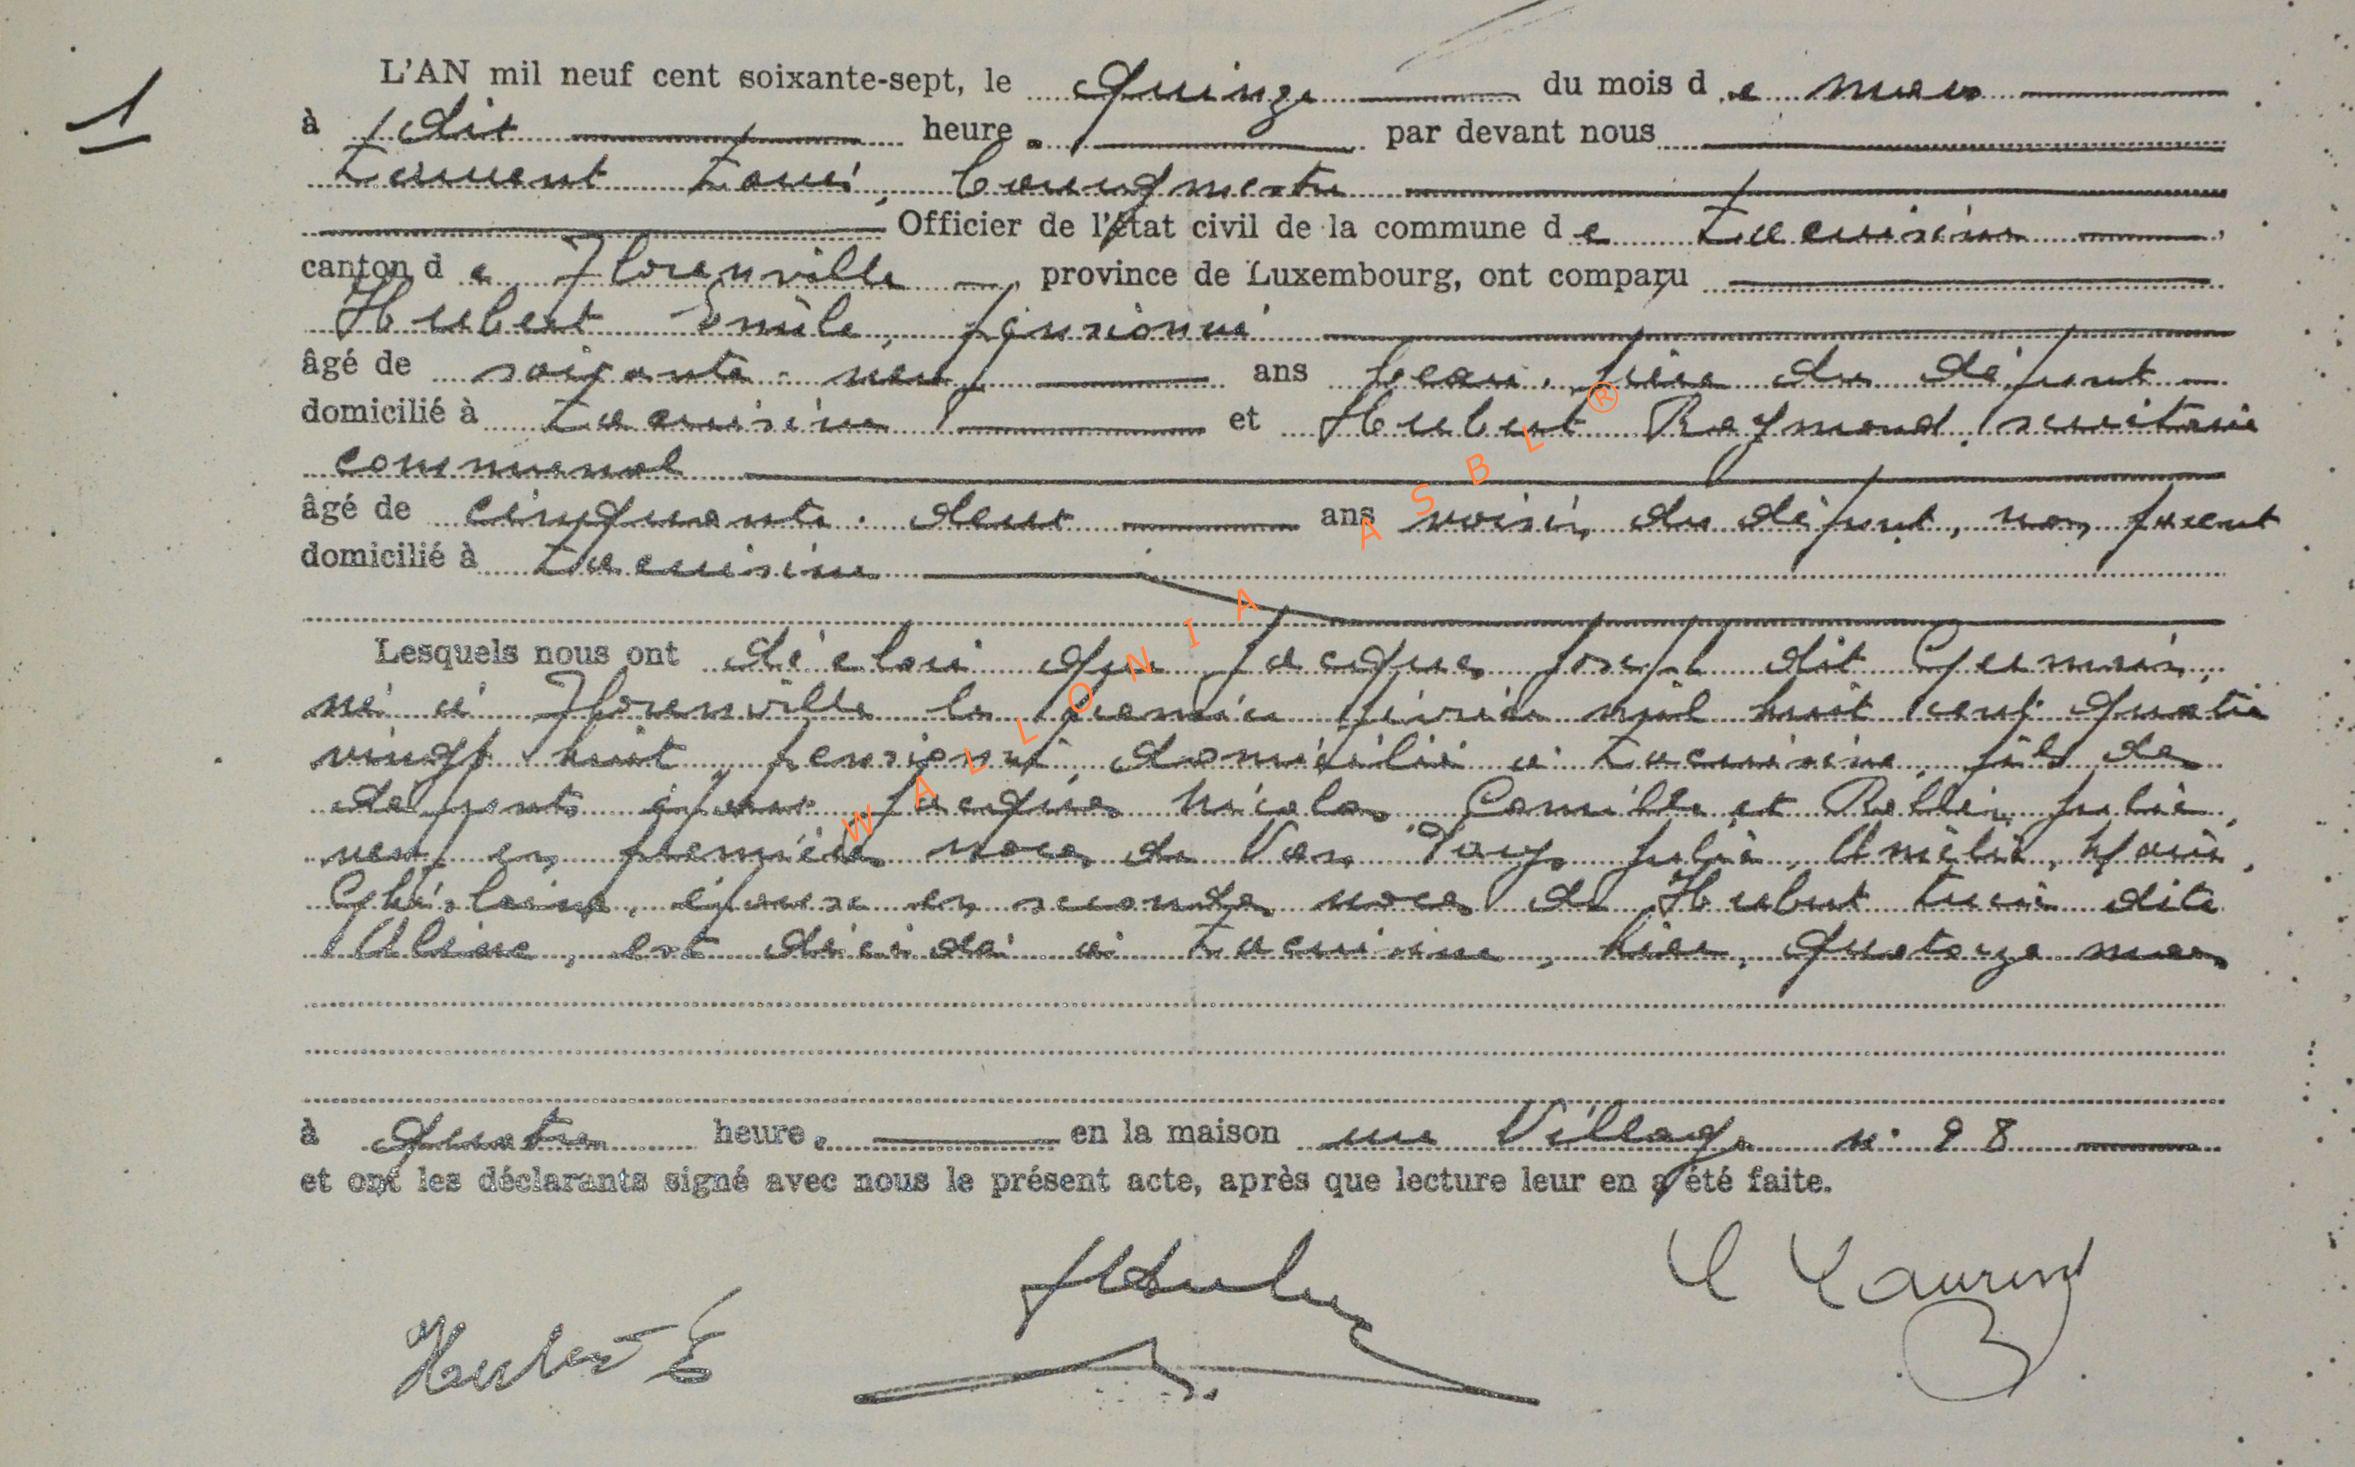 1
L'AN mil neuf cent soixante-sept, le quinze du mois de mars
à dix heures par devant nous
Laurent Louis, Bourgmestre
Officier de l'état civil de la commune de Lacuisine,
canton de Florenville, province de Luxembourg, ont comparu
Hubert Emile, pensionné
âgé de soixante-neuf ans beau-frère du défunt
domicilié à Lacuisine et Hubert Raymond, secrétaire
communal
âgé de cinquante-deux ans voisin du défunt, non parent
domicilié à Lacuisine
Lesquels nous ont déclaré que Jacques Joseph dit Germain,
né à Florenville le premier février mil huit cent quatre
vingt huit, pensionné, domicilié à Lacuisine, fils des
défunts époux Jacques Nicolas Camille et Rollin Julie,
veuf en premières noces de Van Julie, Amélie, Marie,
Ghislaine, époux en secondes noces de Hubert Lucie dite
Aline, est décédé à Lacuisine, hier, quatorze mars
à quatre heures en la maison rue Village n° 98
et ont les déclarants signé avec nous le présent acte, après que lecture leur en a été faite.
Hubert E
Hubert
L Laurent
WALLONIA ASBL ®